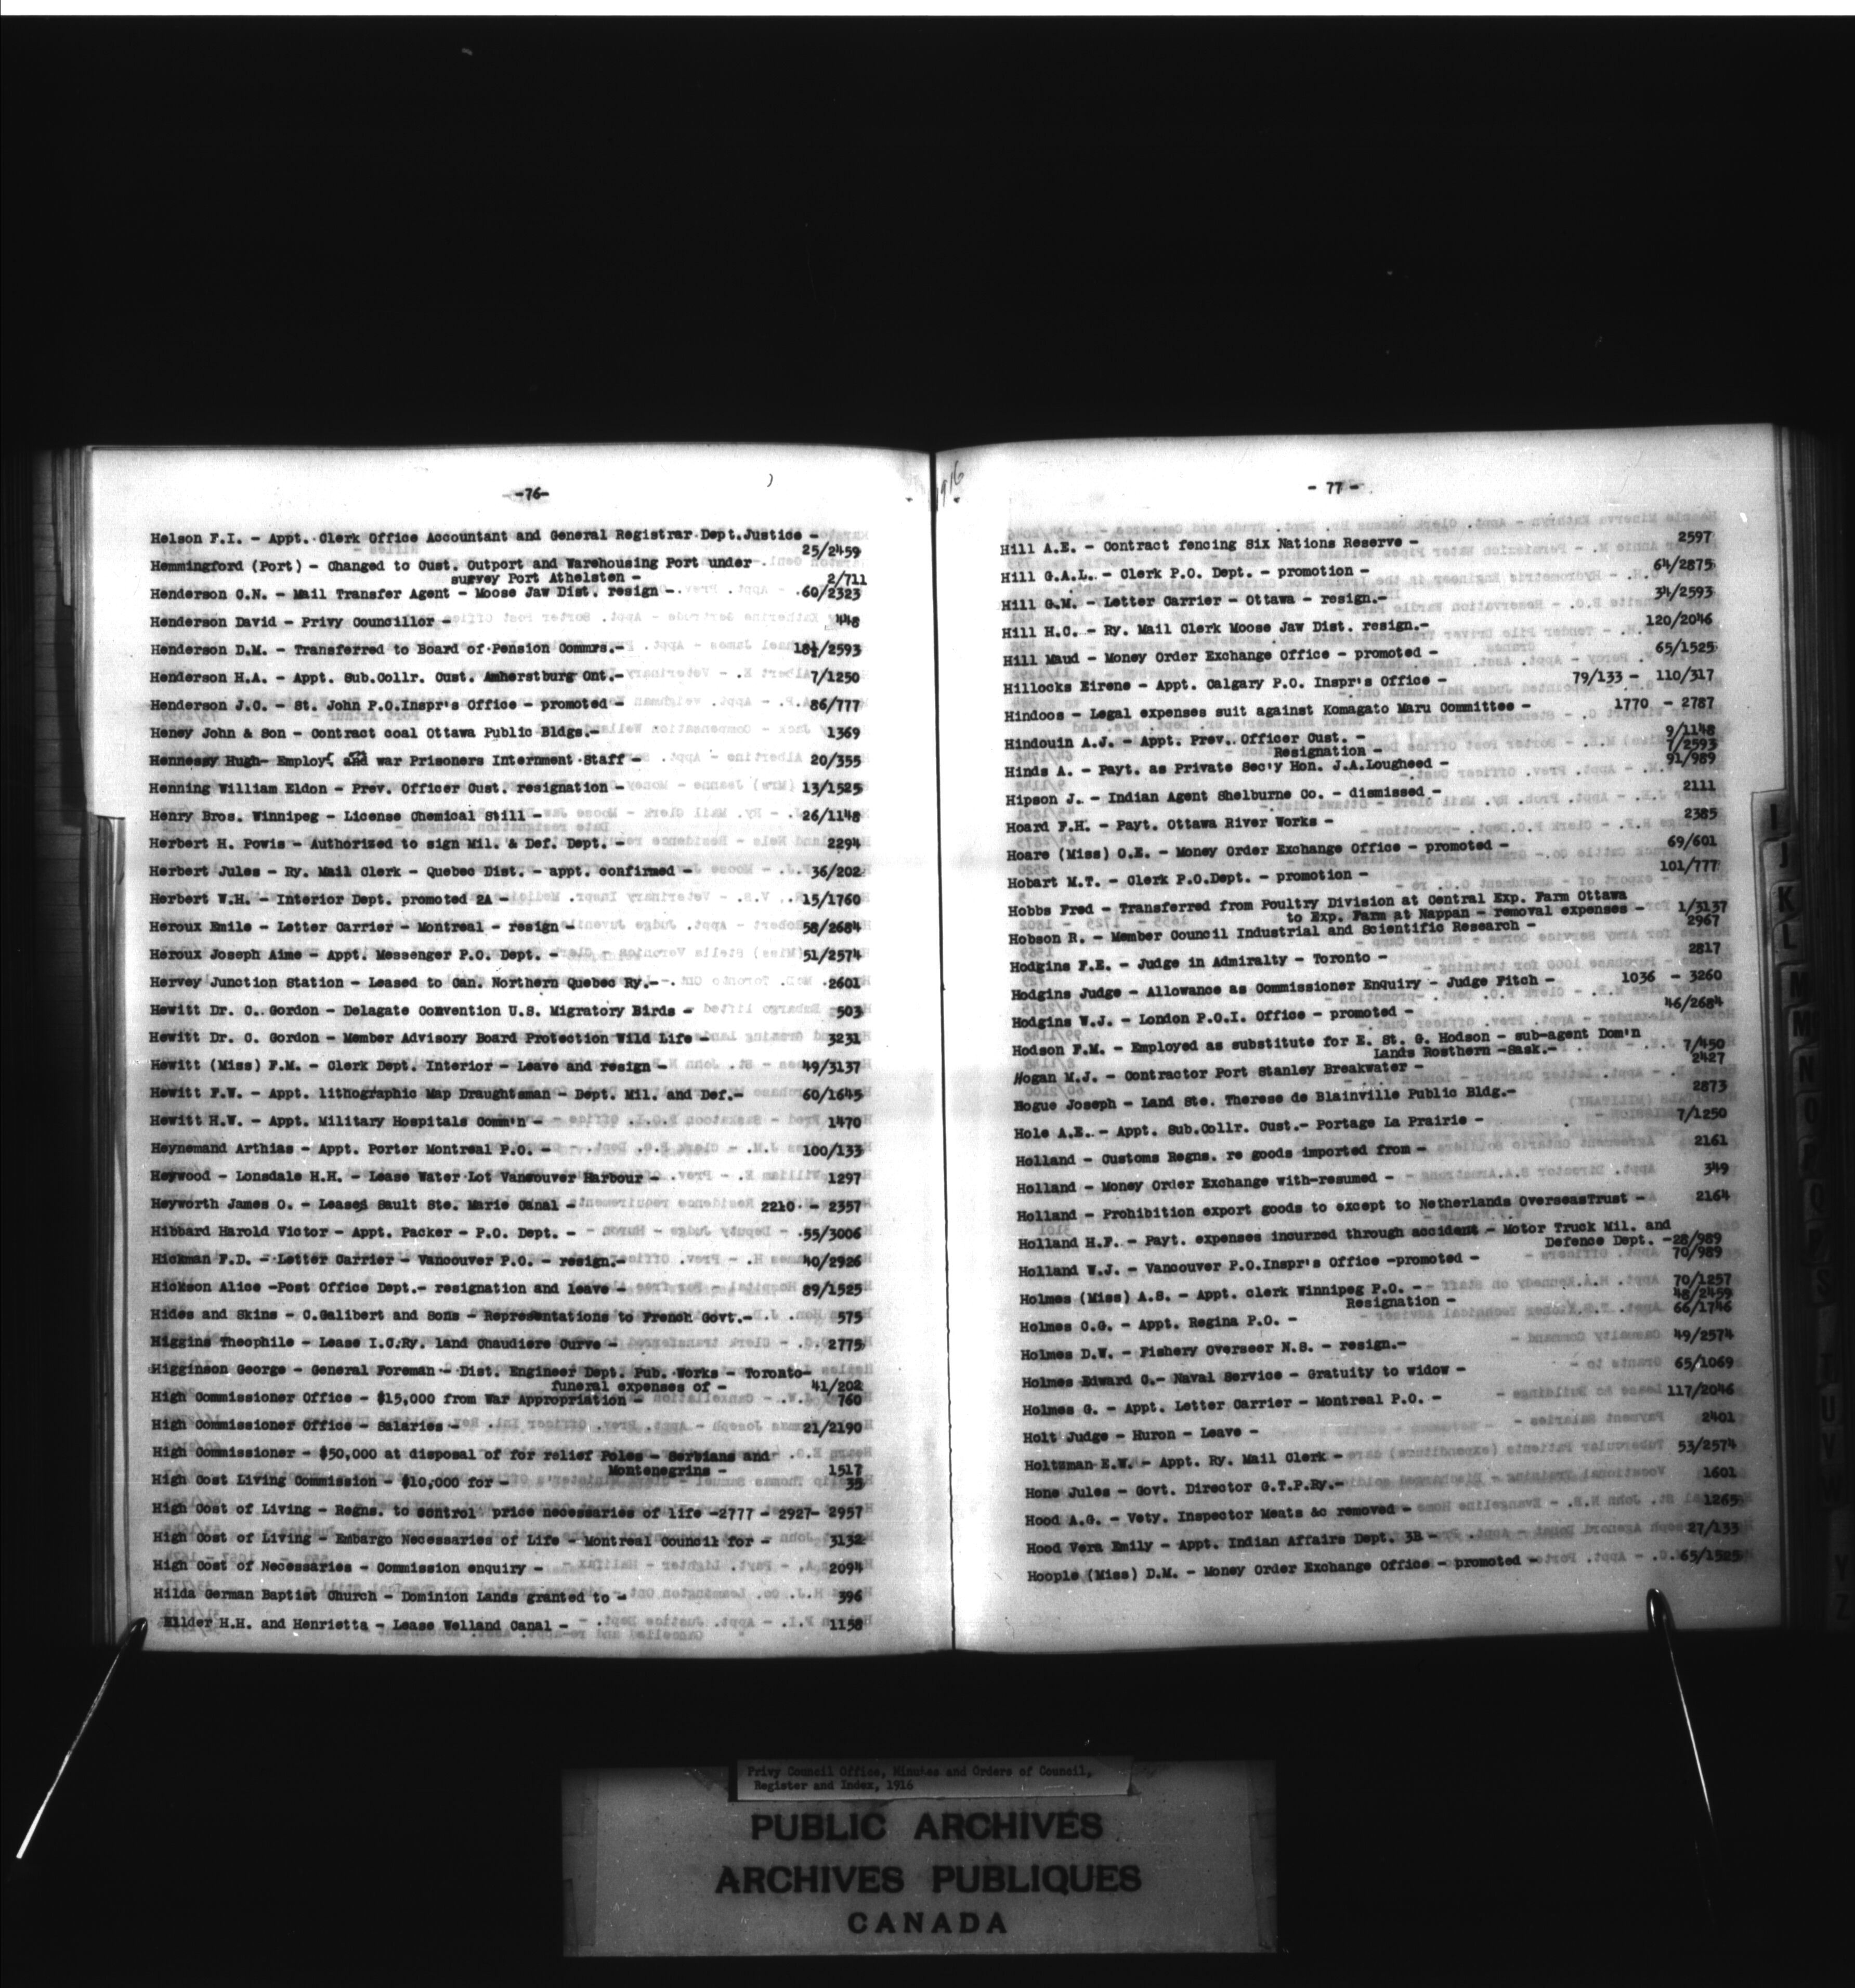 -76-
Helson F.I. - Appt. Clerk Office Accountant and General Registrar Dept. Justice -
25/2459
Hemmingford (Port) - Changed to Cust. Outport and Warehousing Port under
survey Port Athelsten - 2/711
Henderson C.N. - Mail Transfer Agent - Moose Jaw Dist. resign - 60/2323
Henderson David - Privy Councillor - 448
Henderson D.M. - Transferred to Board of Pension Commrs.- 18½/2593
Henderson H.A. - Appt. Sub.Collr. Cust. Amherstburg Ont.- 7/1250
Henderson J.C. - St. John P.O.Inspr's Office - promoted - 86/777
Heney John & Son - Contract coal Ottawa Public Bldgs.- 1369
Hennessy Hugh- Employ and war Prisoners Internment Staff - 20/355
Henning William Eldon - Prev. Officer Cust. resignation - 13/1525
Henry Bros. Winnipeg - License Chemical Still - 26/1148
Herbert H. Powis - Authorized to sign Mil. & Def. Dept. - 2294
Herbert Jules - Ry. Mail Clerk - Quebec Dist. - appt. confirmed - 36/202
Herbert W.H. - Interior Dept. promoted 2A - 15/1760
Heroux Emile - Letter Carrier - Montreal - resign - 58/2684
Heroux Joseph Aime - Appt. Messenger P.O. Dept. - 51/2574
Hervey Junction Station - Leased to Can. Northern Quebec Ry.- 2601
Hewitt Dr. C. Gordon - Delagate Convention U.S. Migratory Birds - 503
Hewitt Dr. C. Gordon - Member Advisory Board Protection Wild Life - 3231
Hewitt (Miss) F.M. - Clerk Dept. Interior - Leave and resign - 49/3137
Hewitt F.W. - Appt. lithographic Map Draughtsman - Dept. Mil. and Def.- 60/1645
Hewitt H.W. - Appt. Military Hospitals Comm'n - 1470
Heynemand Arthias - Appt. Porter Montreal P.O. - 100/133
Heywood - Lonsdale H.H. - Lease Water Lot Vancouver Harbour - 1297
Heyworth James O. - Leased Sault Ste. Marie Canal - 2210 - 2357
Hibbard Harold Victor - Appt. Packer - P.O. Dept. - 55/3006
Hickman F.D. - Letter Carrier - Vancouver P.O. - resign.- 40/2926
Hickson Alice -Post Office Dept.- resignation and leave - 89/1525
Hides and Skins - C.Galibert and Sons - Representations to French Govt.- 575
Higgins Theophile - Lease I.C.Ry. land Chaudiere Curve - 2775
Higginson George - General Foreman - Dist. Engineer Dept. Pub. Works - Toronto-
funeral expenses of - 41/202
High Commissioner Office - $15,000 from War Appropriation - 760
High Commissioner Office - Salaries - 21/2190
High Commissioner - $50,000 at disposal of for relief Poles - Serbians and
Montenegrins - 1517
High Cost Living Commission - $10,000 for - 35
High Cost of Living - Regns. to control price necessaries of life -2777 - 2927- 2957
High Cost of Living - Embargo Necessaries of Life - Montreal Council for - 3132
High Cost of Necessaries - Commission enquiry - 2094
Hilda German Baptist Church - Dominion Lands granted to - 396
Hilder H.H. and Henrietta - Lease Welland Canal - 1158
1916
- 77 -
Hill A.E. - Contract fencing Six Nations Reserve - 2597
Hill G.A.L. - Clerk P.O. Dept. - promotion - 64/2875
Hill G.M. - Letter Carrier - Ottawa - resign.- 34/2593
Hill H.C. - Ry. Mail Clerk Moose Jaw Dist. resign.- 120/2046
Hill Maud - Money Order Exchange Office - promoted - 65/1525
Hillocks Eirene - Appt. Calgary P.O. Inspr's Office - 79/133 - 110/317
Hindoos - Legal expenses suit against Komagato Maru Committee - 1770 - 2787
Hindouin A.J. - Appt. Prev. Officer Cust. - 9/1148
Resignation - 7/2593
Hinds A. - Payt. as Private Sec'y Hon. J.A.Lougheed - 91/989
Hipson J. - Indian Agent Shelburne Co. - dismissed - 2111
Hoard F.H. - Payt. Ottawa River Works - 2385
Hoare (Miss) C.E. - Money Order Exchange Office - promoted - 69/601
Hobart M.T. - Clerk P.O.Dept. - promotion - 101/777
Hobbs Fred - Transferred from Poultry Division at Central Exp. Farm Ottawa
to Exp. Farm at Nappan - removal expenses - 1/3137
Hobson R. - Member Council Industrial and Scientific Research - 2967
Hodgins F.E. - Judge in Admiralty - Toronto - 2817
Hodgins Judge - Allowance as Commissioner Enquiry - Judge Fitch - 1036 - 3260
Hodgins W.J. - London P.O.I. Office - promoted - 46/2684
Hodson F.M. - Employed as substitute for E. St. G. Hodson - sub-agent Dom'n
Lands Rosthern -Sask.- 7/450
Hogan M.J. - Contractor Port Stanley Breakwater - 2427
Hogue Joseph - Land Ste. Therese de Blainville Public Bldg.- 2873
Hole A.E. - Appt. Sub.Collr. Cust.- Portage La Prairie - 7/1250
Holland - Customs Regns. re goods imported from - 2161
Holland - Money Order Exchange with-resumed - 349
Holland - Prohibition export goods to except to Netherlands OverseasTrust - 2164
Holland H.F. - Payt. expenses incurred through accident - Motor Truck Mil. and
Defence Dept. -28/989
Holland W.J. - Vancouver P.O.Inspr's Office -promoted - 70/989
Holmes (Miss) A.S. - Appt. clerk Winnipeg P.O. - 70/1257
Resignation - 48/2459
Holmes C.G. - Appt. Regina P.O. - 66/1746
Holmes D.W. - Fishery Overseer N.S. - resign.- 49/2574
Holmes Edward C.- Naval Service - Gratuity to widow - 65/1069
Holmes G. - Appt. Letter Carrier - Montreal P.O. - 117/2046
Holt Judge - Huron - Leave - 2401
Holtzman E.W. - Appt. Ry. Mail Clerk - 53/2574
Hone Jules - Govt. Director G.T.P.Ry.- 1601
Hood A.G. - Vety. Inspector Meats &c removed - 1265
Hood Vera Emily - Appt. Indian Affairs Dept. 3B - 27/133
Hoople (Miss) D.M. - Money Order Exchange Office - promoted - 65/1525
J
K
L
M
N
U
V
Z
Privy Council Office, Minutes and Orders of Council,
Register and Index, 1916
PUBLIC ARCHIVES
ARCHIVES PUBLIQUES
CANADA